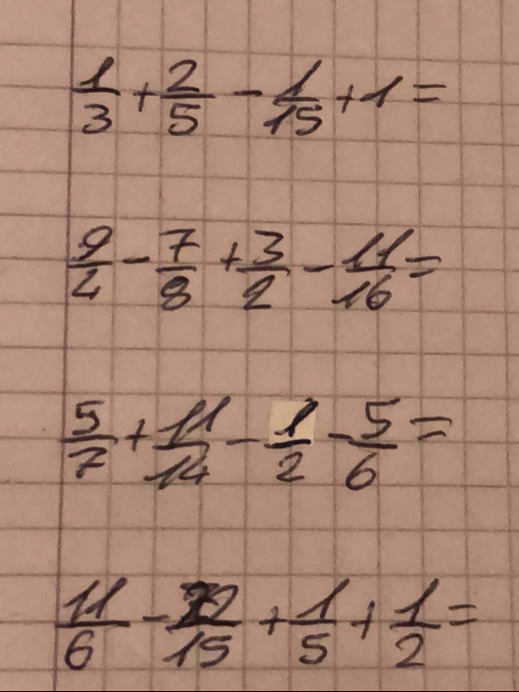 1/3 + 2/5 - 1/15 + 1 =
9/4 - 7/8 + 3/2 - 11/16 =
5/7 + 11/14 - 1/2 - 5/6 =
11/6 - 22/15 + 1/5 + 1/2 =